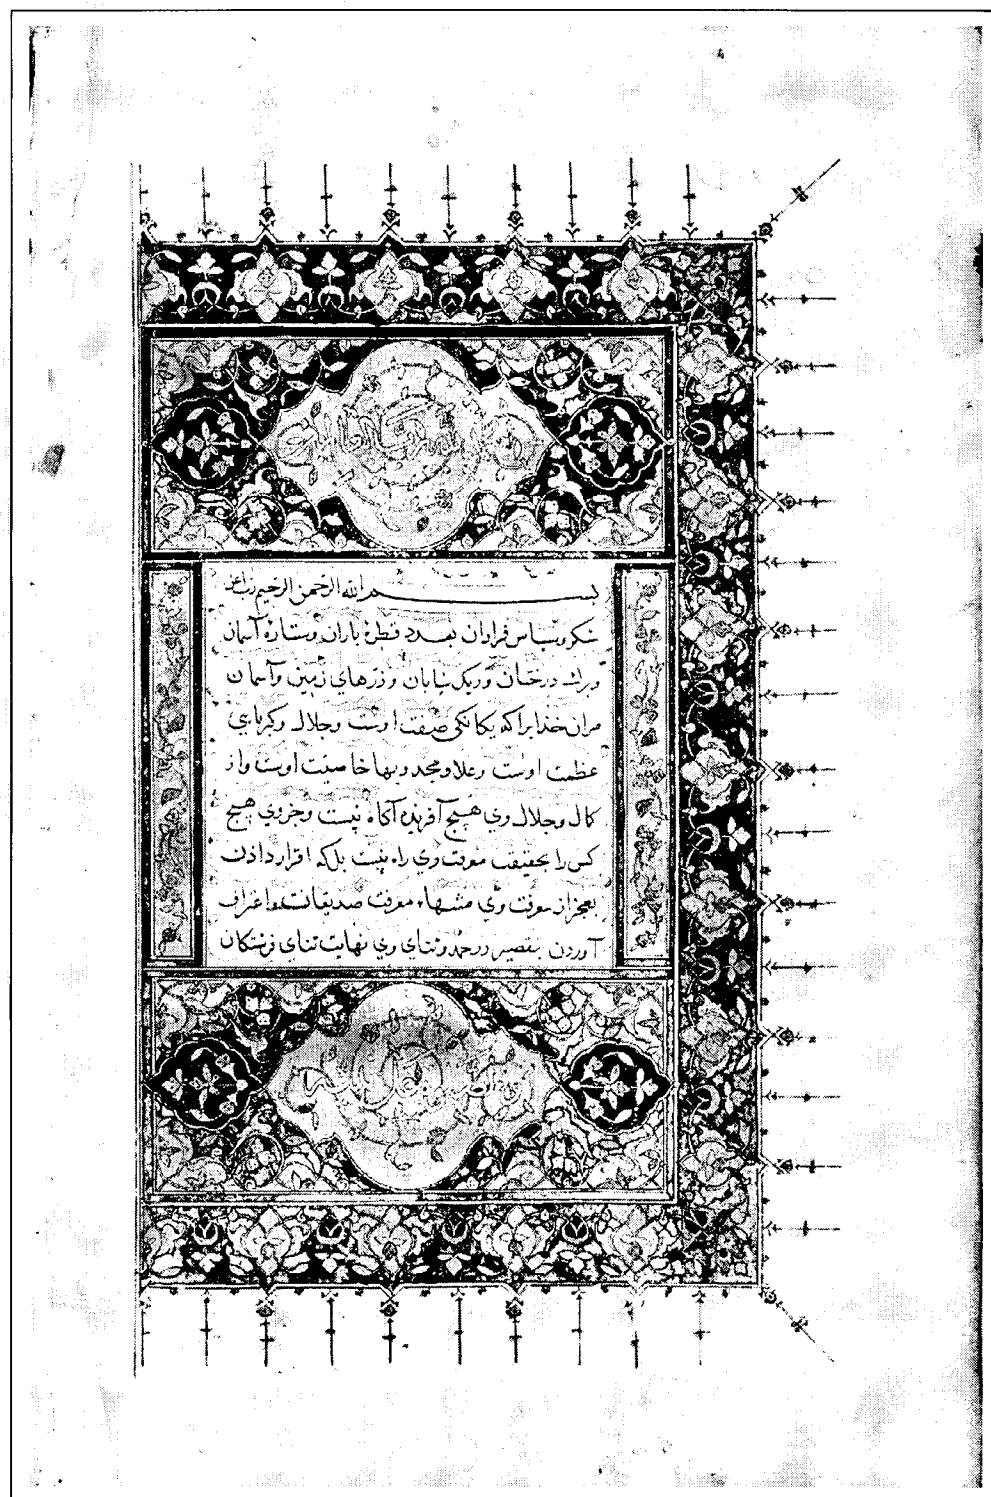 بسم الله الرحمن الرحيم
شكر وسپاس فراوان بعدد قطرهٔ باران وستارهٔ آسمان
وبرك درختان وريك بيابان وذرهاي زمين وآسمان
مران خدايراكه يكانكي صفت اوست وجلال وكبريايي
عظمت اوست وعلا ومجد وبها خاصيت اوست واز
كمال وجلال وي هيچ آفريده آكاه نيست وجز وي هيچ
كس را بحقيقت معرفت وي راه نيست بلكه اقرار دادن
بعجز از معرفت وي منتهاء معرفت صديقانست واعتراف
آوردن بتقصير در حمد وثناي وي نهايت ثناي فرشتكان